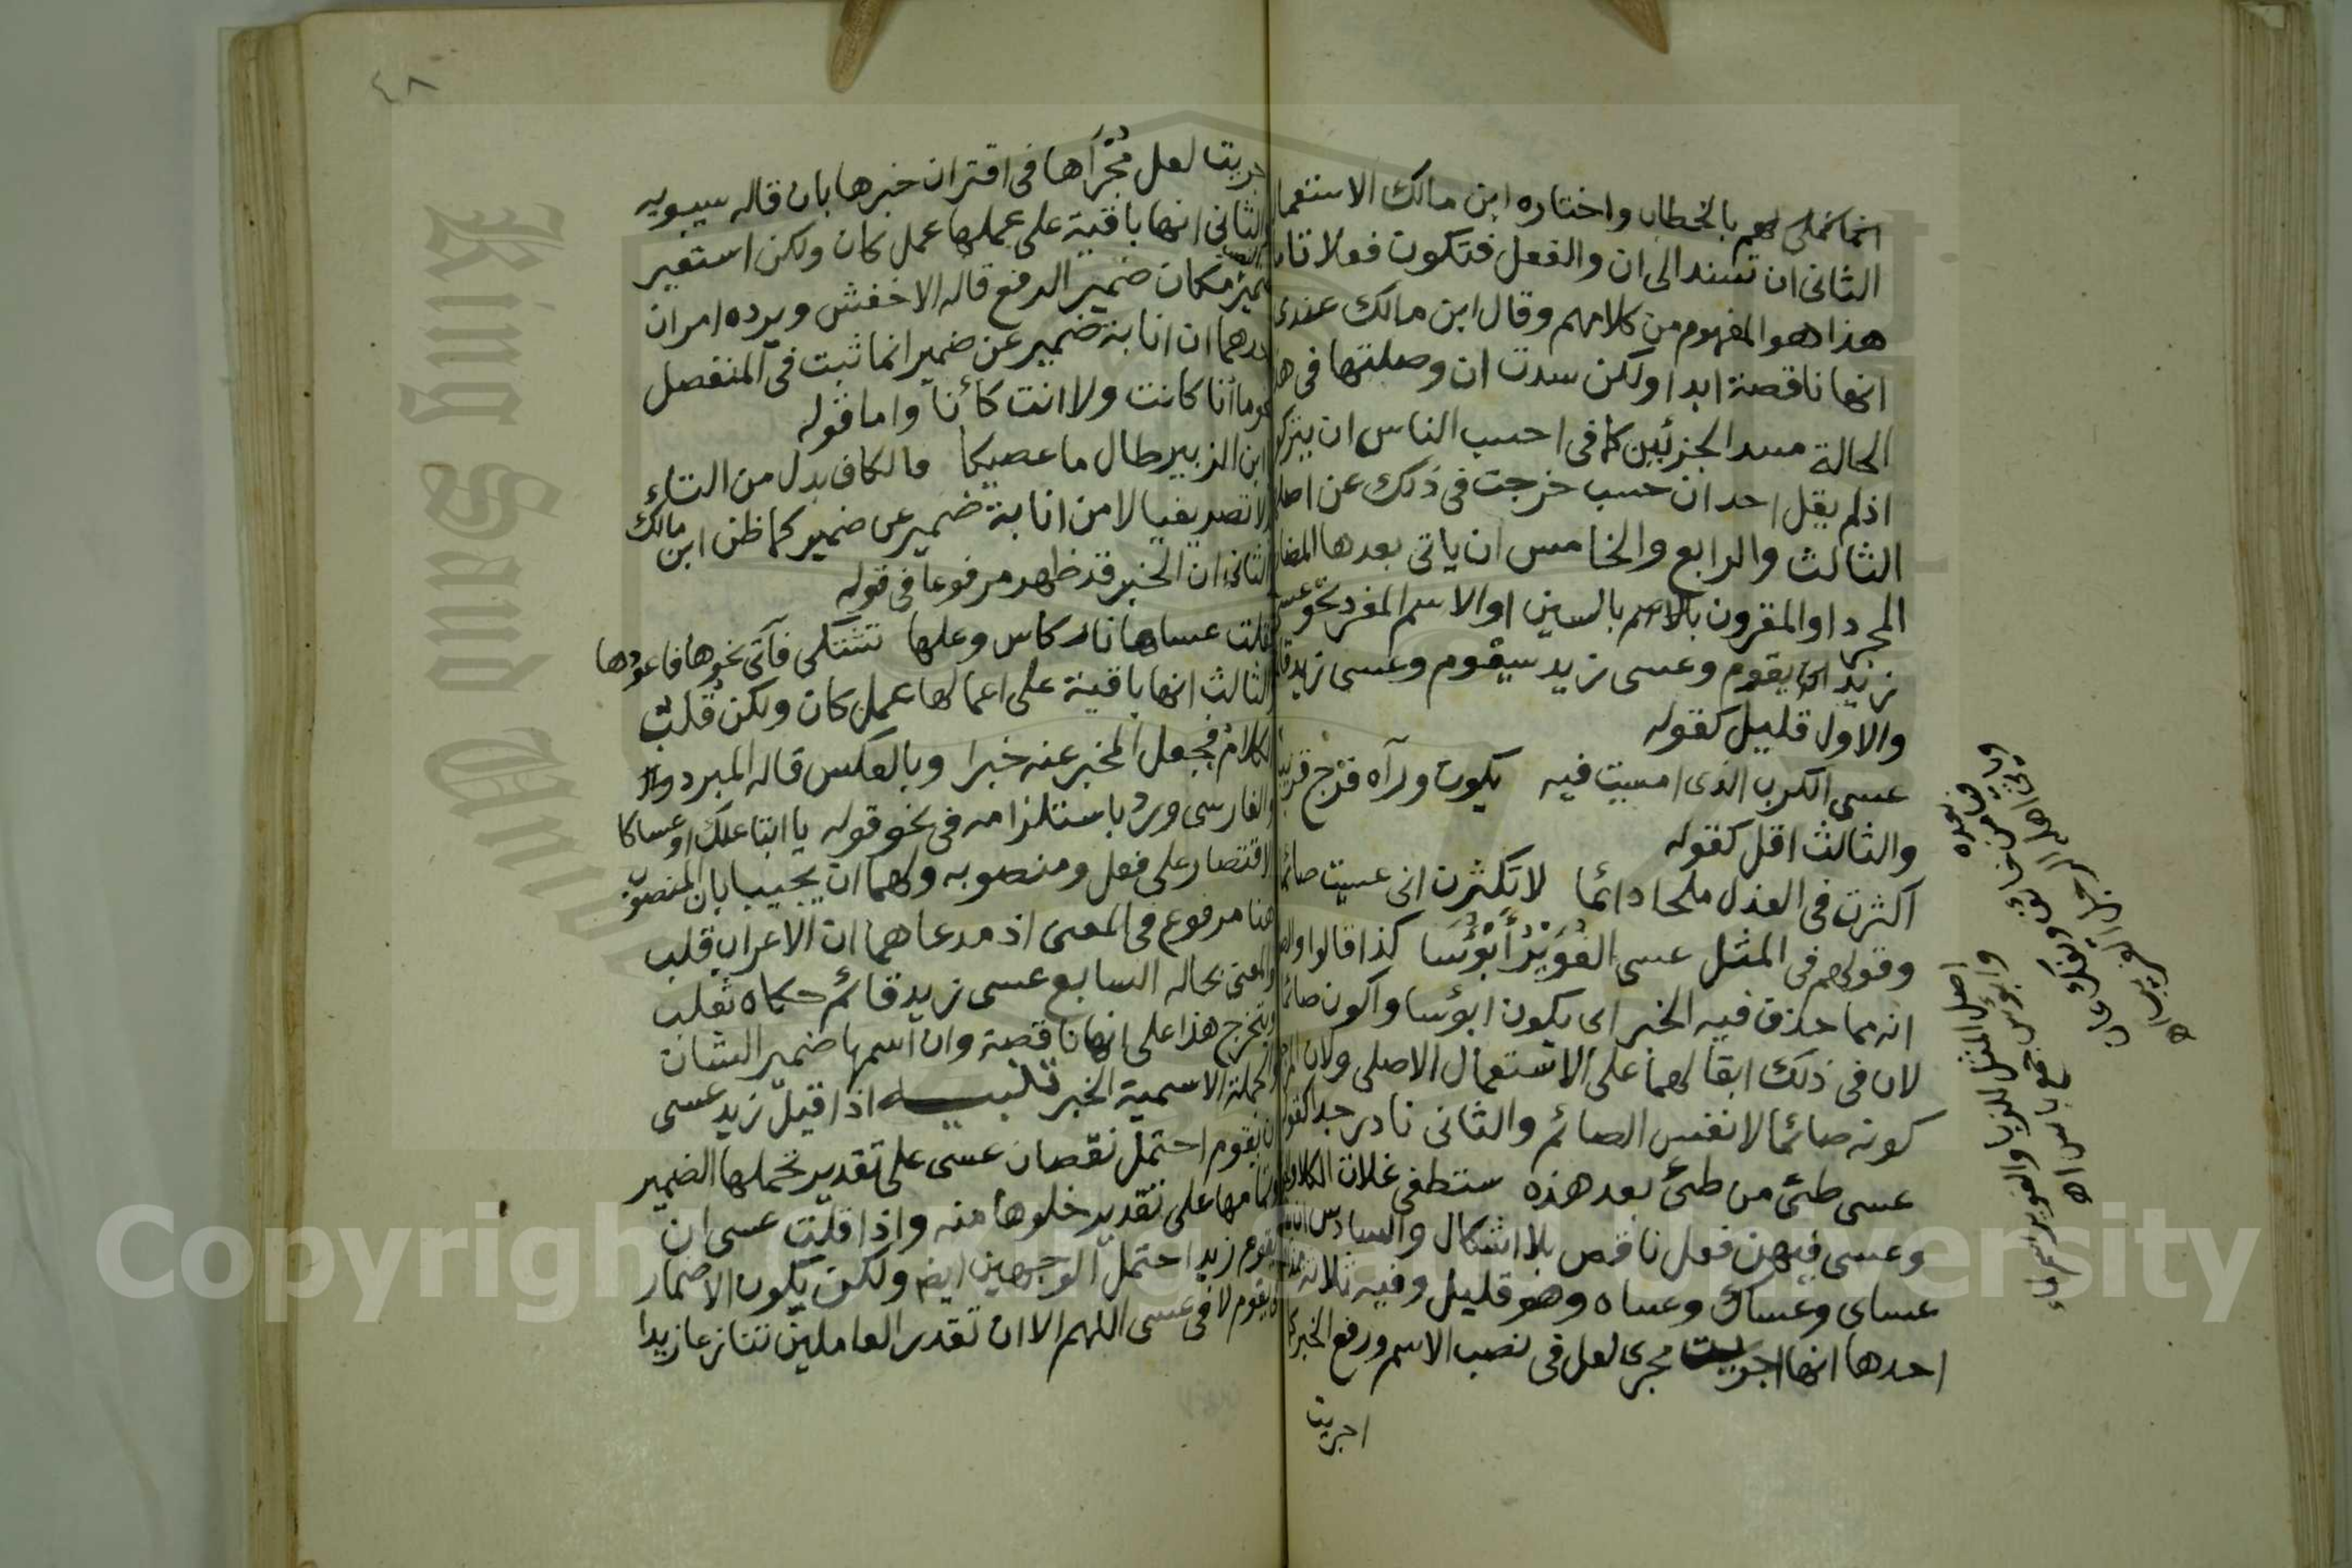 انها تخلي لهم بالخطاب واختاره ابن مالك الاستعما
الثاني ان تسند الى ان والفعل فتكون فعلا تاما
هذا هو المفهوم من كلامهم وقال ابن مالك عندى
انها ناقصة ابدا ولكن سدت ان وصلتها في هذ
الحالة مسد الجزئين كما في احسب الناس ان يتركو
اذ لم يقل احد ان حسب خرجت في ذلك عن اصلها
الثالث والرابع والخامس ان ياتى بعدها المضار
المجرد او المقرون بالسين او الاسم المفرد نحو عسى
زيد يقوم وعسى زيد سيقوم وعسى زيد قا
والاول قليل كقوله
عسى الكرب الذى امسيت فيه يكون ورآه فرج قريب
والثالث اقل كقوله
اكثرت في العذل ملحا دائما لا تكثرن انى عسيت صائما
وقولهم في المثل عسى الغُوَيْرُ أَبْؤُسَا كذا قالوا والص
انه مما حذف فيه الخبر اى يكون ابؤسا واكون صائما
لان في ذلك ابقا لهما على الاستعمال الاصلى ولان المرجو
كونه صائما لا نفس الصائم والثاني نادر جدا كقوله
عسى طئ من طئ بعد هذه ستطفى غلات الكلا
وعسى فيهن فعل ناقص بلا اشكال والسادس ان
عساى وعساك وعساه وهو قليل وفيه ثلاثة
احدها انها اجريت مجرى لعل في نصب الاسم ورفع الخبر كما
اجريت
٤٨
جريت لعل مُجْرَآها في اقتران خبرها بان قاله سيبويه
والثاني انها باقية على عملها عمل كان ولكن استعير
ضمير مكان ضمير الرفع قاله الاخفش ويرده امران
احدهما ان انابة ضمير عن ضمير انما ثبت في المنفصل
نحو ما انا كانت ولا انت كأنا واما قوله
ابن الزبير طال ما عصيكا فالكاف بدل من التاء
لا تصريفيا لا من انابة ضمير عن ضمير كما ظن ابن مالك
الثاني ان الخبر قد ظهر مرفوعا في قوله
فقلت عساها نار كاس وعلها تشتكى فآتى نحوها فاعودها
والثالث انها باقية على اعمالها عمل كان ولكن قلب
الكلام فجعل المخبر عنه خبرا وبالعكس قاله المبرد
والفارسى ورد باستلزامه في نحو قوله يا ابتا علك او عساكا
الاقتصار على فعل ومنصوبه ولهما ان يجيبا بان المنصوب
هنا مرفوع في المعنى اذ مدعاهما ان الاعراب قلب
والمعنى بحاله السابع عسى زيد قائم حكاه ثعلب
ويتخرج هذا على انها ناقصة وان اسمها ضمير الشان
والجملة الاسمية الخبر تنبيه اذا قيل زيد عسى
ان يقوم احتمل نقصان عسى على تقدير تحملها الضمير
وتمامها على تقدير خلوها منه واذا قلت عسى ان
يقوم زيد احتمل الوجهين ايض ولكن يكون الاضمار
في يقوم لا في عسى اللهم الا ان تقدر العاملين تنازعا زيدا